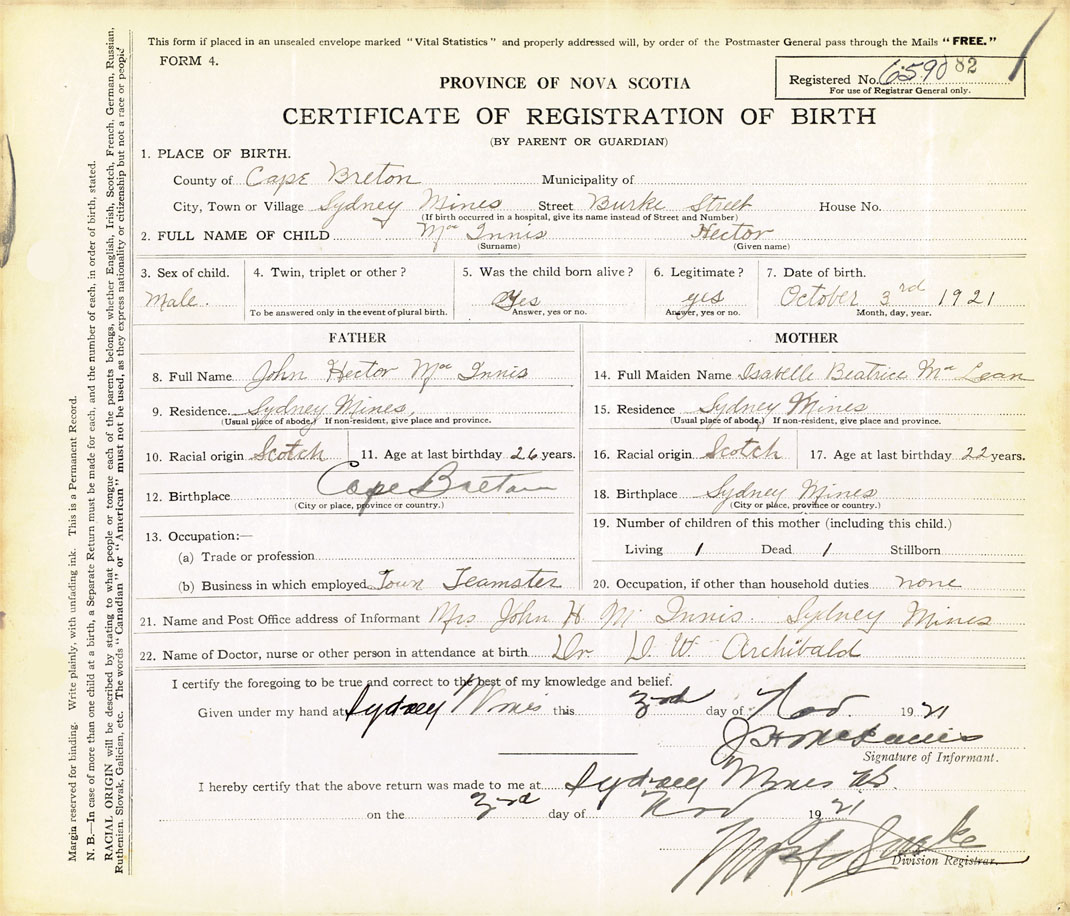 This form if placed in an unsealed envelope marked "Vital Statistics" and properly addressed will, by order of the Postmaster General pass through the Mails "FREE."
FORM 4.
Registered No. 6590 82
For use of Registrar General only.
PROVINCE OF NOVA SCOTIA
CERTIFICATE OF REGISTRATION OF BIRTH
(BY PARENT OR GUARDIAN)
1. PLACE OF BIRTH.
County of Cape Breton Municipality of
City, Town or Village Sydney Mines Street Burke Street House No.
(If birth occurred in a hospital, give its name instead of Street and Number)
2. FULL NAME OF CHILD Mac Innis Hector
(Surname) (Given name)
3. Sex of child. 4. Twin, triplet or other? 5. Was the child born alive? 6. Legitimate? 7. Date of birth.
Male. Yes yes October 3rd 1921
To be answered only in the event of plural birth. Answer, yes or no. Answer, yes or no. Month, day, year.
FATHER MOTHER
8. Full Name John Hector Mac Innis 14. Full Maiden Name Isabelle Beatrice Mac Lean
9. Residence Sydney Mines, 15. Residence Sydney Mines
(Usual place of abode.) If non-resident, give place and province. (Usual place of abode.) If non-resident, give place and province.
10. Racial origin Scotch 11. Age at last birthday 26 years. 16. Racial origin Scotch 17. Age at last birthday 22 years.
12. Birthplace Cape Breton 18. Birthplace Sydney Mines
(City or place, province or country.) (City or place, province or country.)
13. Occupation:— 19. Number of children of this mother (including this child.)
(a) Trade or profession Living 1 Dead 1 Stillborn
(b) Business in which employed Town Teamster 20. Occupation, if other than household duties none
21. Name and Post Office address of Informant Mrs John H. Mc Innis. Sydney Mines
22. Name of Doctor, nurse or other person in attendance at birth Dr. D. W. Archibald
I certify the foregoing to be true and correct to the best of my knowledge and belief.
Given under my hand at Sydney Mines this 3rd day of Nov 1921
J H McInnis
Signature of Informant.
I hereby certify that the above return was made to me at Sydney Mines NS.
on the 3rd day of Nov 1921
Division Registrar.
Margin reserved for binding. Write plainly, with unfading ink. This is a Permanent Record.
N. B.—In case of more than one child at a birth, a Separate Return must be made for each, and the number of each, in order of birth, stated.
RACIAL ORIGIN will be described by stating to what people or tongue each of the parents belongs, whether English, Irish, Scotch, French, German, Russian,
Ruthenian, Slovak, Galician, etc. The words "Canadian" or "American" must not be used, as they express nationality or citizenship but not a race or people